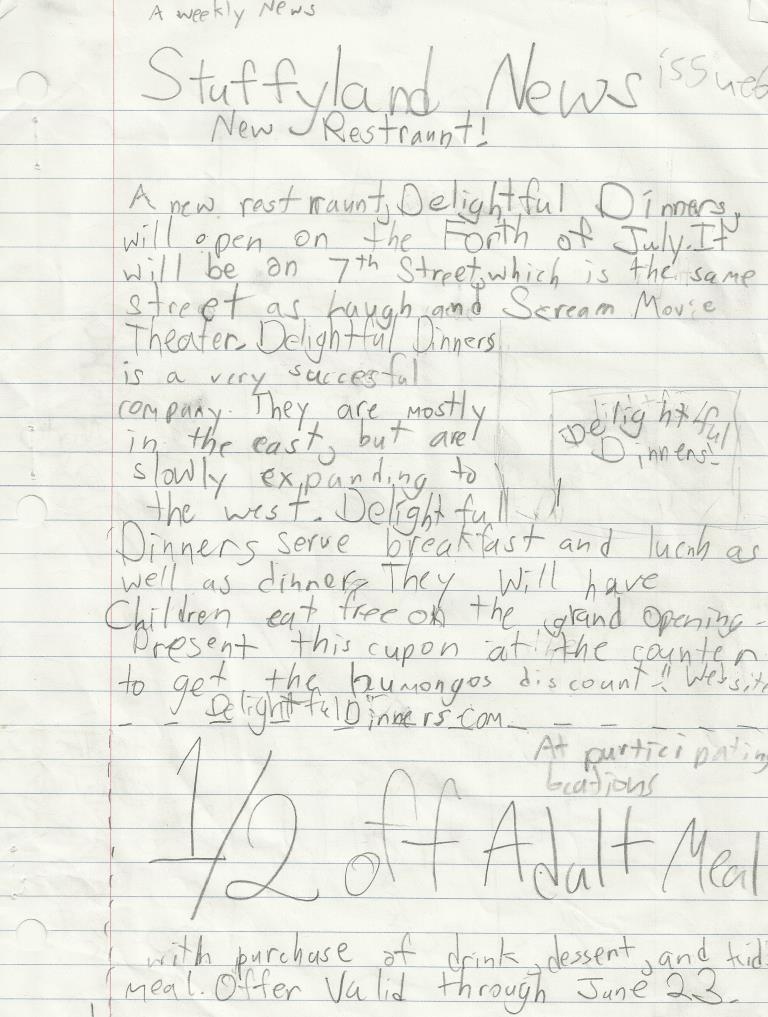 A weekly News
Stuffyland News
issue6
New Restraunt!
A new restraunt, Delightful Dinners,
will open on the Forth of July. It
will be on 7th Street, which is the same
street as Laugh and Scream Movie
Theater. Delightful Dinners
is a very succesful
company. They are mostly
in the east, but are
slowly expanding to
the west. Delightfull
Delightful
Dinners!
Dinners serve breakfast and lucnh as
well as dinner. They will have
Children eat free on the grand opening.
Present this cupon at the counter
to get the humongos discount!! Website
DelightfulDinners.com
At participating
locations
1/2 off Adult Meal
with purchase of drink, dessert, and kid
meal. Offer Valid through June 23.